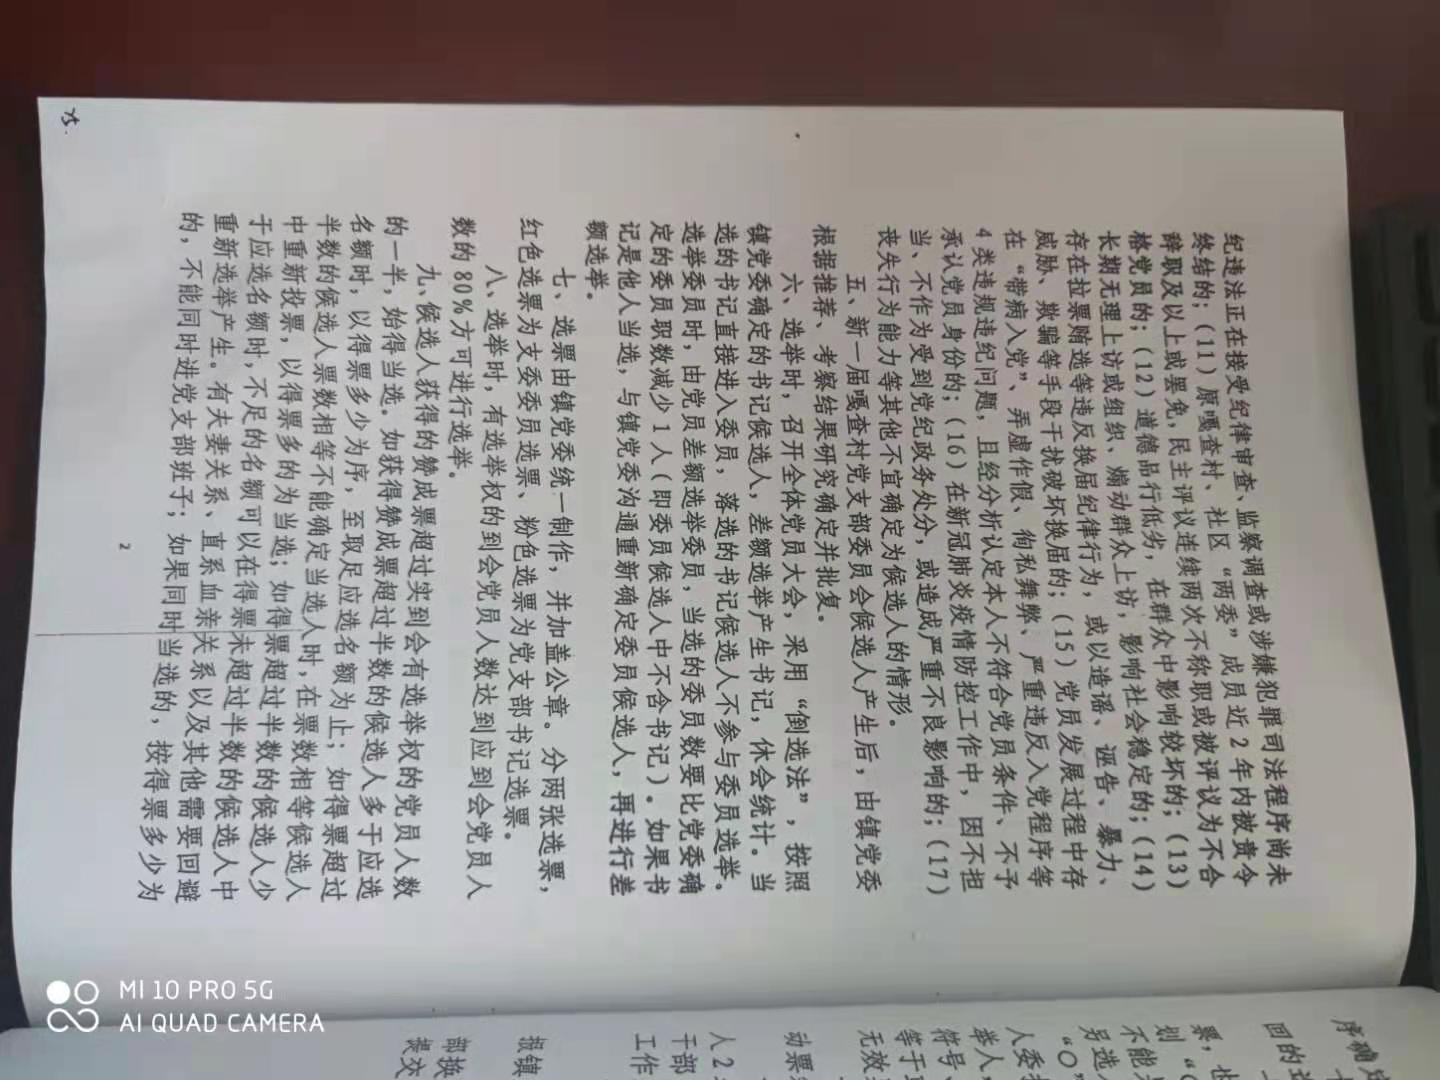 纪违法正在接受纪律审查、监察调查或涉嫌犯罪司法程序尚未
终结的；(11)原嘎查村、社区“两委”成员近2年内被责令
辞职及以上或罢免，民主评议连续两次不称职或被评议为不合
格党员的；(12)道德品行低劣，在群众中影响较坏的；(13)
长期无理上访或组织、煽动群众上访，影响社会稳定的；(14)
存在拉票贿选等违反换届纪律行为，或以造谣、诬告、暴力、
威胁、欺骗等手段干扰破坏换届的；(15)党员发展过程中存
在“带病入党”、弄虚作假、徇私舞弊、严重违反入党程序等
4类违规违纪问题，且经分析认定本人不符合党员条件、不予
承认党员身份的；(16)在新冠肺炎疫情防控工作中，因不担
当、不作为受到党纪政务处分，或造成严重不良影响的；(17)
丧失行为能力等其他不宜确定为候选人的情形。
五、新一届嘎查村党支部委员会候选人产生后，由镇党委
根据推荐、考察结果研究确定并批复。
六、选举时，召开全体党员大会，采用“倒选法”，按照
镇党委确定的书记候选人，差额选举产生书记，休会统计。当
选的书记直接进入委员，落选的书记候选人不参与委员选举。
选举委员时，由党员差额选举委员，当选的委员数要比党委确
定的委员职数减少1人（即委员候选人中不含书记）。如果书
记是他人当选，与镇党委沟通重新确定委员候选人，再进行差
额选举。
七、选票由镇党委统一制作，并加盖公章。分两张选票，
红色选票为支委委员选票、粉色选票为党支部书记选票。
八、选举时，有选举权的到会党员人数达到应到会党员人
数的80%方可进行选举。
九、候选人获得的赞成票超过实到会有选举权的党员人数
的一半，始得当选。如获得赞成票超过半数的候选人多于应选
名额时，以得票多少为序，至取足应选名额为止；如得票超过
半数的候选人票数相等不能确定当选人时，在票数相等候选人
中重新投票，以得票多的为当选；如得票超过半数的候选人少
于应选名额时，不足的名额可以在得票未超过半数的候选人中
重新选举产生。有夫妻关系、直系血亲关系以及其他需要回避
的，不能同时进党支部班子；如果同时当选的，按得票多少为
2
序确定
回的选
票，也
划“
不能
另选
“O”
人委
举人，
符号、
等于
无效
动票
人2
干部
工作
报镇
部换
提交
MI 10 PRO 5G
AI QUAD CAMERA